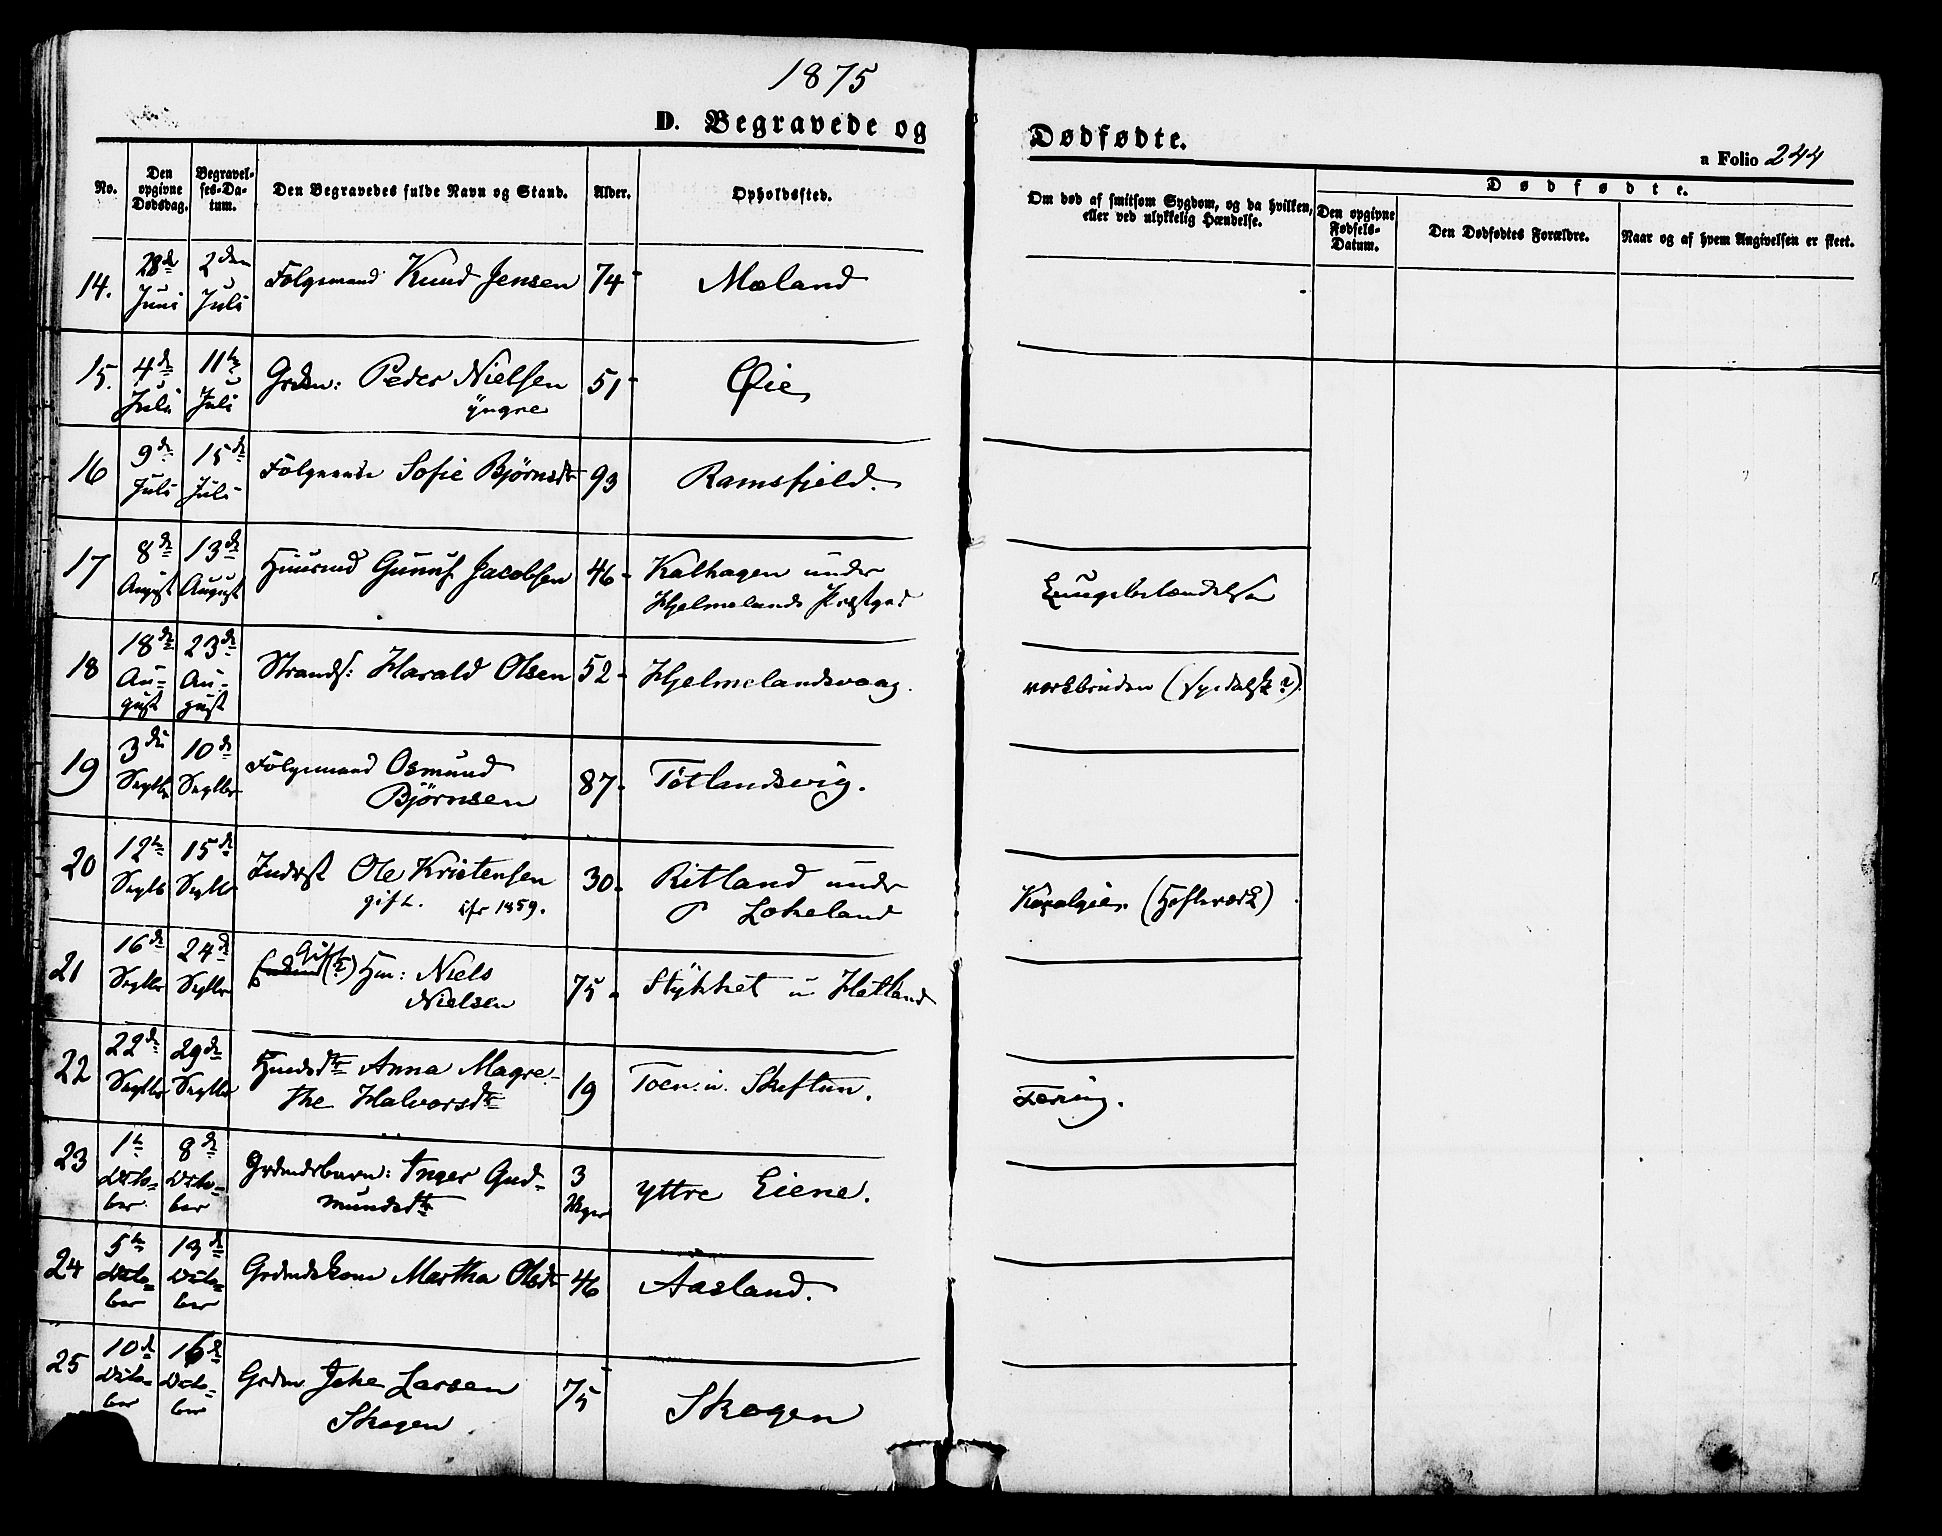 1875
D. Begravede og Dødfødte.
a Folio 244
No.
Den opgivne Dødsdag.
Begravelses-Datum.
Den Begravedes fulde Navn og Stand.
Alder.
Opholdssted.
Om død af smitsom Sygdom, og da hvilken, eller ved ulykkelig Hændelse.
Dødfødte.
Den opgivne Fødsels-Datum.
Den Dødfødtes Forældre.
Naar og af hvem Angivelsen er skeet.
14. 28de Juni 2den Juli Folgemand Knud Jensen 74 Mæland
15. 4de Juli 11te Juli Grdm: Peder Nielsen yngre 51 Øie
16 9de Juli 15de Juli Sofie Bjørnsdtr 93 Ramsfjeld.
17 8de August 13de August Huusmd Gunuf Jacobsen 46 Kalhagen under Hjelmelands Præstgrd Lungebetændelse
18 18de August 23de August Strands: Harald Olsen 52 Hjelmelandsvaag.
19 3die Septbr 10de Septbr Folgemand Osmund Bjørnsen 87 Tøtlandsvig.
20 12te Septb 15de Septbr Inderst Ole Kristensen gift. 30 Ritland under Lokeland (Hofteværk)
21 16de Septbr 24de Septbr Gift Hm: Niels Nielsen 75 Stykket u Hetland
22 22de Septbr 29de Septbr Anna Magrethe Halvorsdtr 19 Toen u. Skiftun. Tæring.
23 1te October 8de October Grdmdsbarn: Inger Gudmundsdtr 3 Uger yttre Eiene.
24 5te October 13de October Grdmdskone Martha Olsdtr 46 Aasland.
25 10de October 16de October Grdm Johe Larsen Skogen 75 Skogen